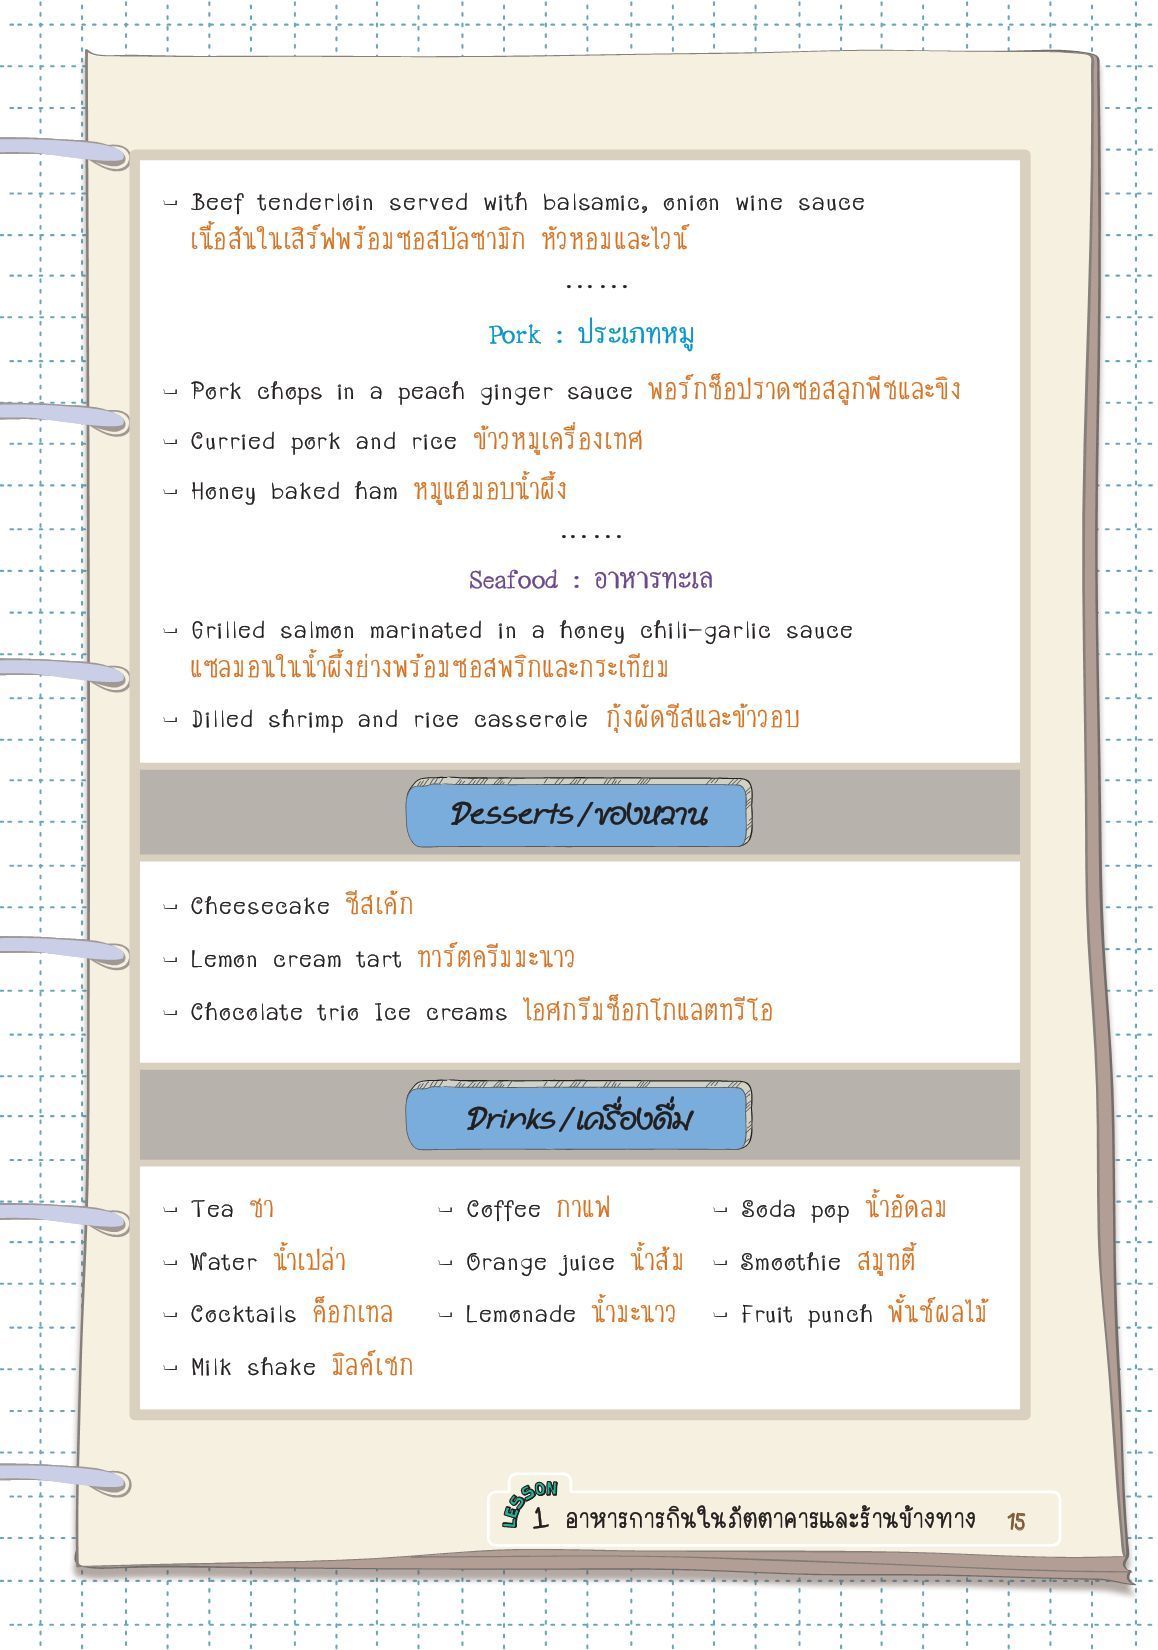 Beef tenderloin served with balsamic, onion wine sauce
เนื้อสันในเสิร์ฟพร้อมซอสบัลซามิก หัวหอมและไวน์
......
Pork : ประเภทหมู
Pork chops in a peach ginger sauce พอร์กช็อปราดซอสลูกพีชและขิง
Curried pork and rice ข้าวหมูเครื่องเทศ
Honey baked ham หมูแฮมอบน้ำผึ้ง
......
Seafood : อาหารทะเล
Grilled salmon marinated in a honey chili-garlic sauce
แซลมอนในน้ำผึ้งย่างพร้อมซอสพริกและกระเทียม
Dilled shrimp and rice casserole กุ้งผัดชีสและข้าวอบ
Desserts/ของหวาน
Cheesecake ชีสเค้ก
Lemon cream tart ทาร์ตครีมมะนาว
Chocolate trio Ice creams ไอศกรีมช็อกโกแลตทรีโอ
Drinks/เครื่องดื่ม
Tea ชา Coffee กาแฟ Soda pop น้ำอัดลม
Water น้ำเปล่า Orange juice น้ำส้ม Smoothie สมูทตี้
Cocktails ค็อกเทล Lemonade น้ำมะนาว Fruit punch พั้นช์ผลไม้
Milk shake มิลค์เชก
LESSON 1 อาหารการกินในภัตตาคารและร้านข้างทาง 15